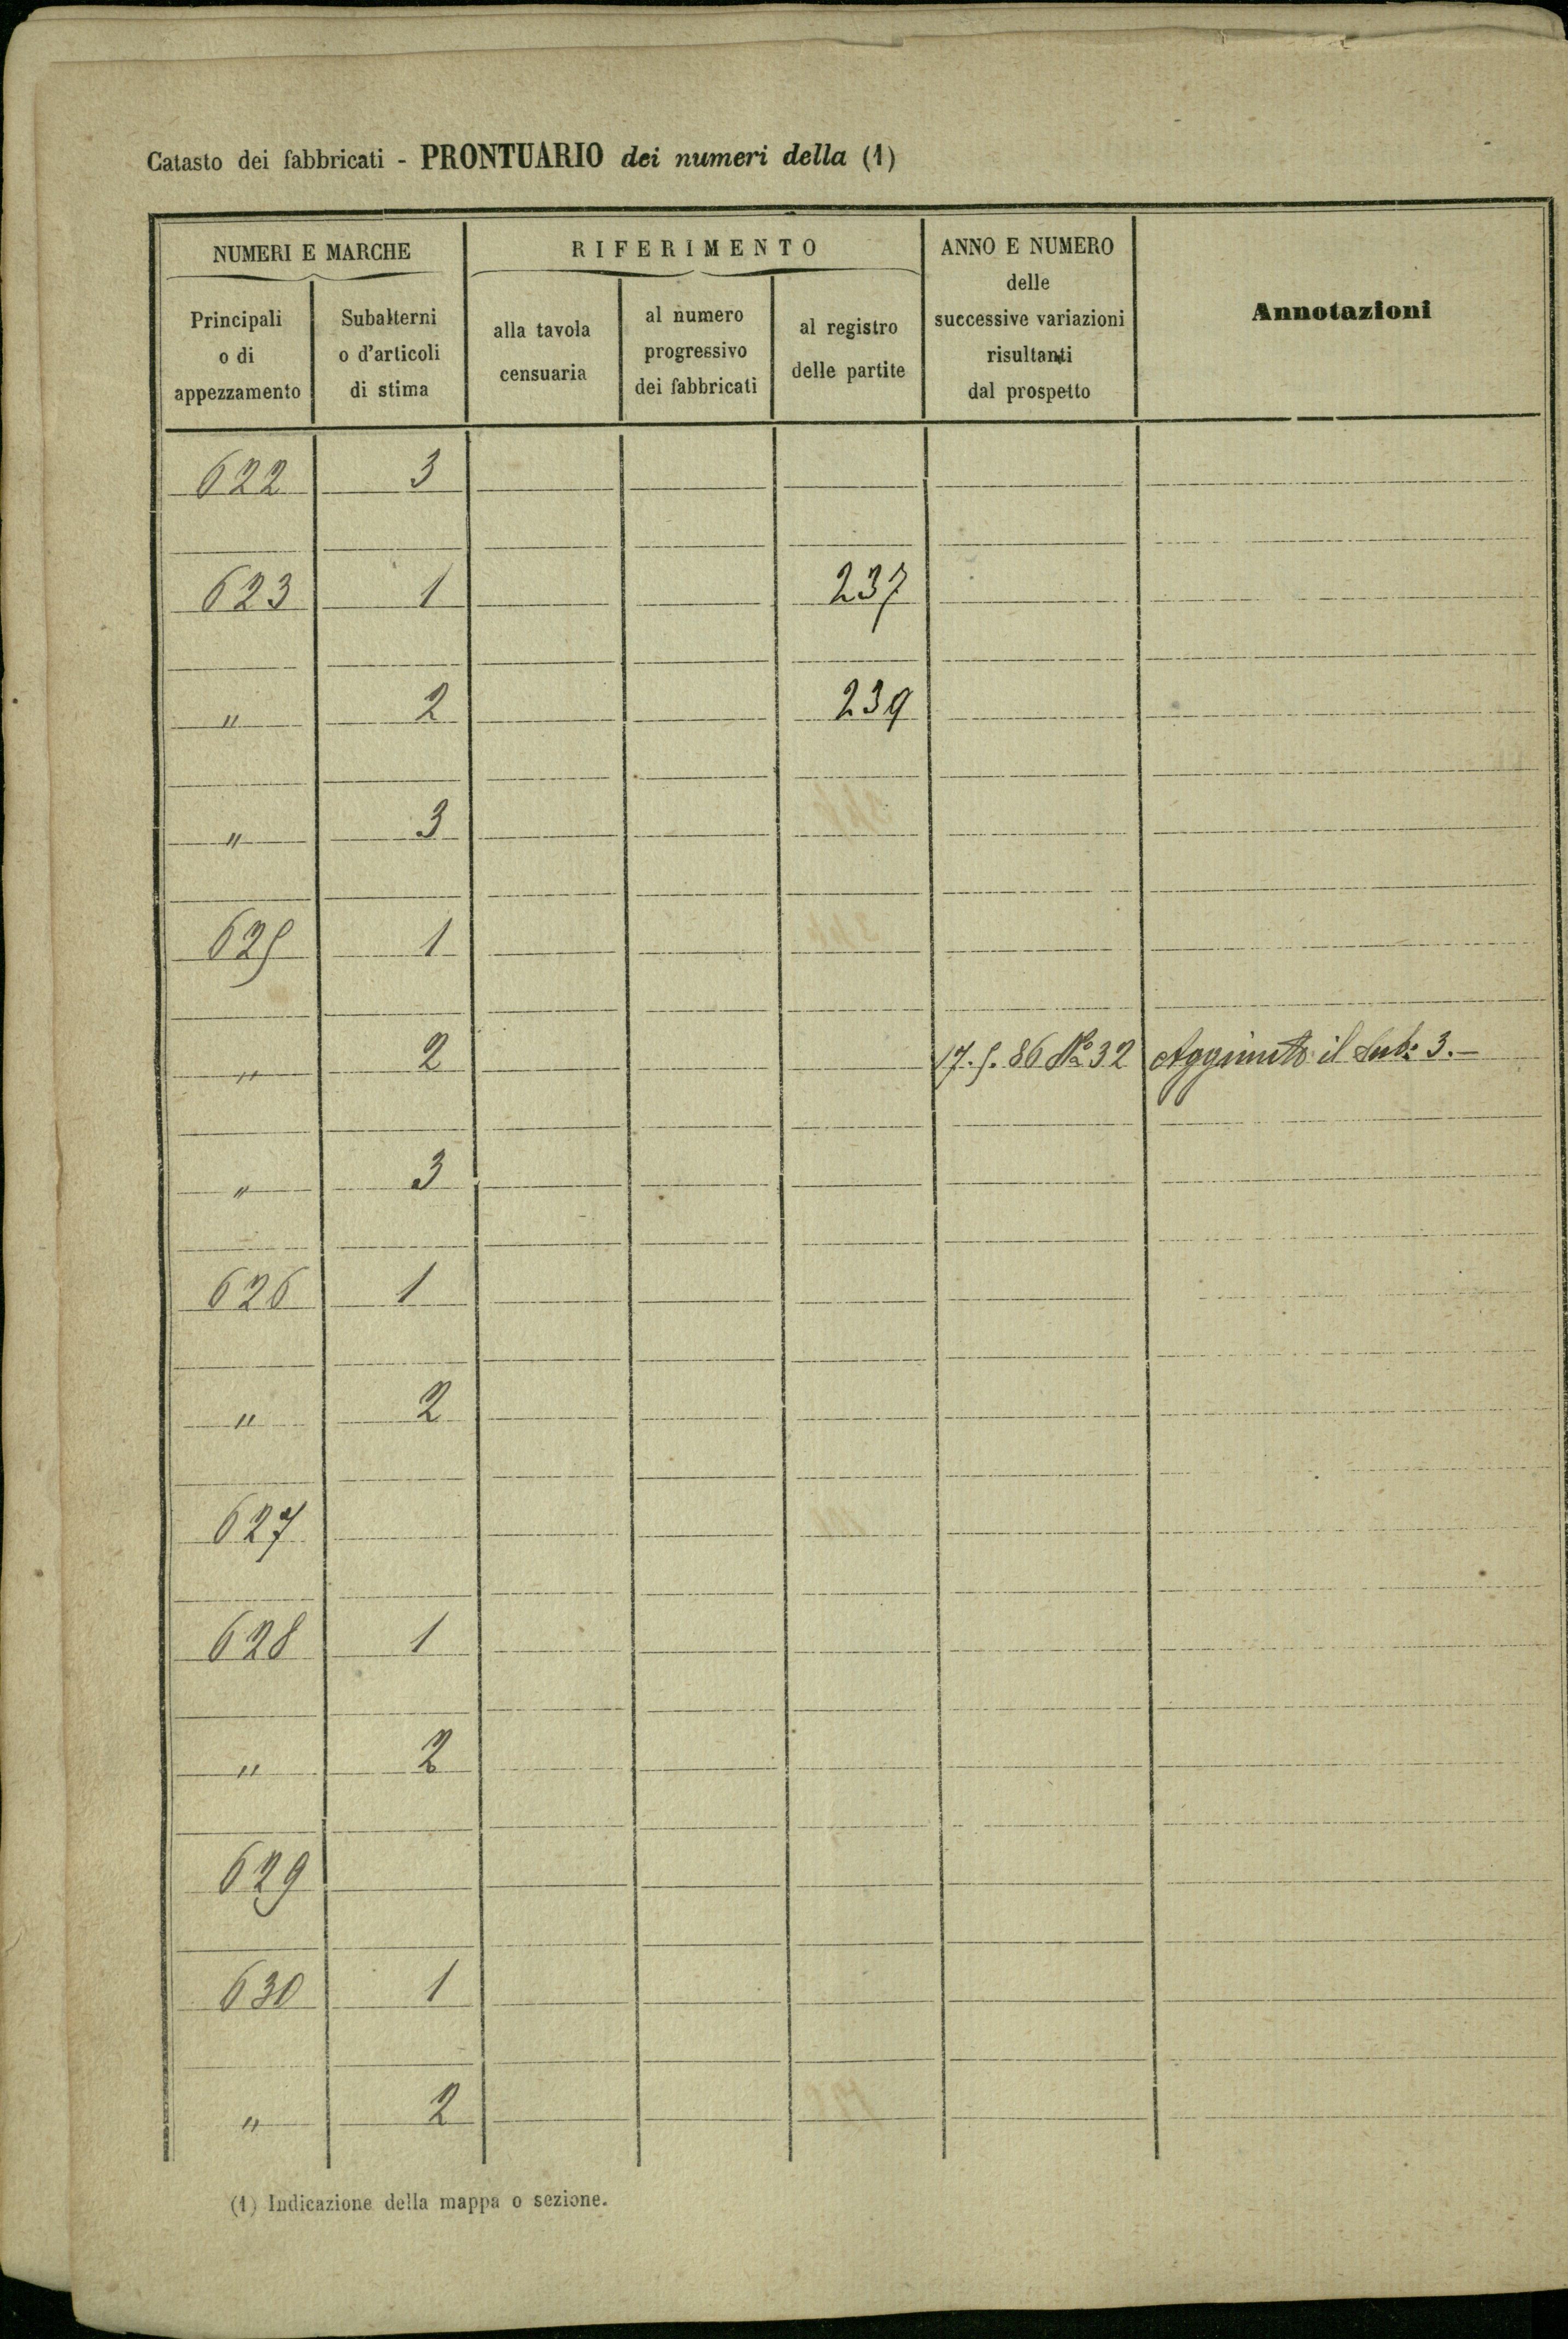 Catasto dei fabbricati - PRONTUARIO dei numeri della (1)
NUMERI E MARCHE
RIFERIMENTO
ANNO E NUMERO
delle
successive variazioni
risultanti
dal prospetto
Annotazioni
Principali
o di
appezzamento
Subalterni
o d'articoli
di stima
alla tavola
censuaria
al numero
progressivo
dei fabbricati
al registro
delle partite
622 3
623 1 237
" 2 239
" 3
625 1
" 2 17.5.86 No 32 Aggiunto il Sub: 3.-
" 3
626 1
" 2
627
628 1
" 2
629
630 1
" 2
(1) Indicazione della mappa o sezione.